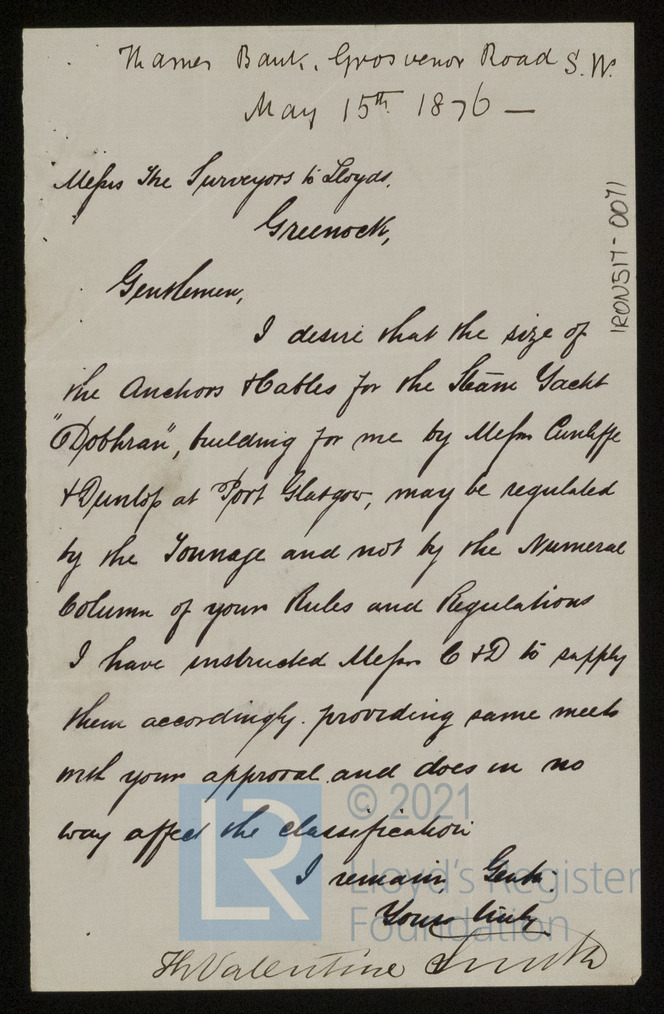 Thames Bank, Grosvenor Road S.W.
May 15th 1876 —
Messrs The Surveyors to Lloyds,
Greenock,
Gentlemen,
I desire that the size of
the Anchors & Cables for the Steam Yacht
"Dobhran", building for me by Messrs Cunliffe
& Dunlop at Port Glasgow, may be regulated
by the Tonnage and not by the Numeral
Column of your Rules and Regulations
I have instructed Messrs C & D to supply
them accordingly. providing same meets
with your approval and does in no
way affect the classification
I remain, Gents.
Yours truly
Th Valentine Smith
IRON517-0071
LR
© 2021
Lloyd's Register
Foundation